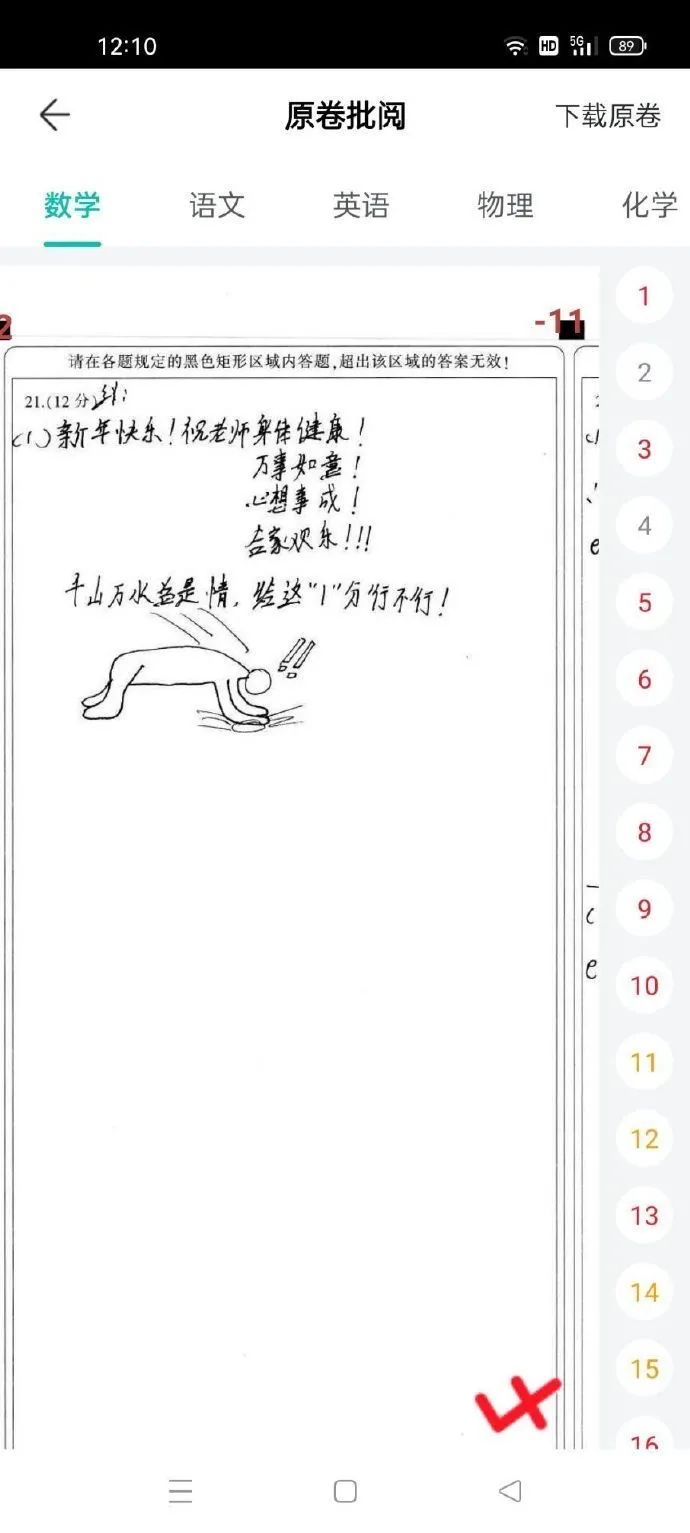 12:10
HD 5G 89
原卷批阅
下载原卷
数学 语文 英语 物理 化学
2
-11
请在各题规定的黑色矩形区域内答题,超出该区域的答案无效!
21.(12分)
(1)新年快乐!祝老师身体健康!
万事如意!
心想事成!
合家欢乐!!!
千山万水总是情,给这“1”分行不行!
!!
1
2
3
4
5
6
7
8
9
10
11
12
13
14
15
16